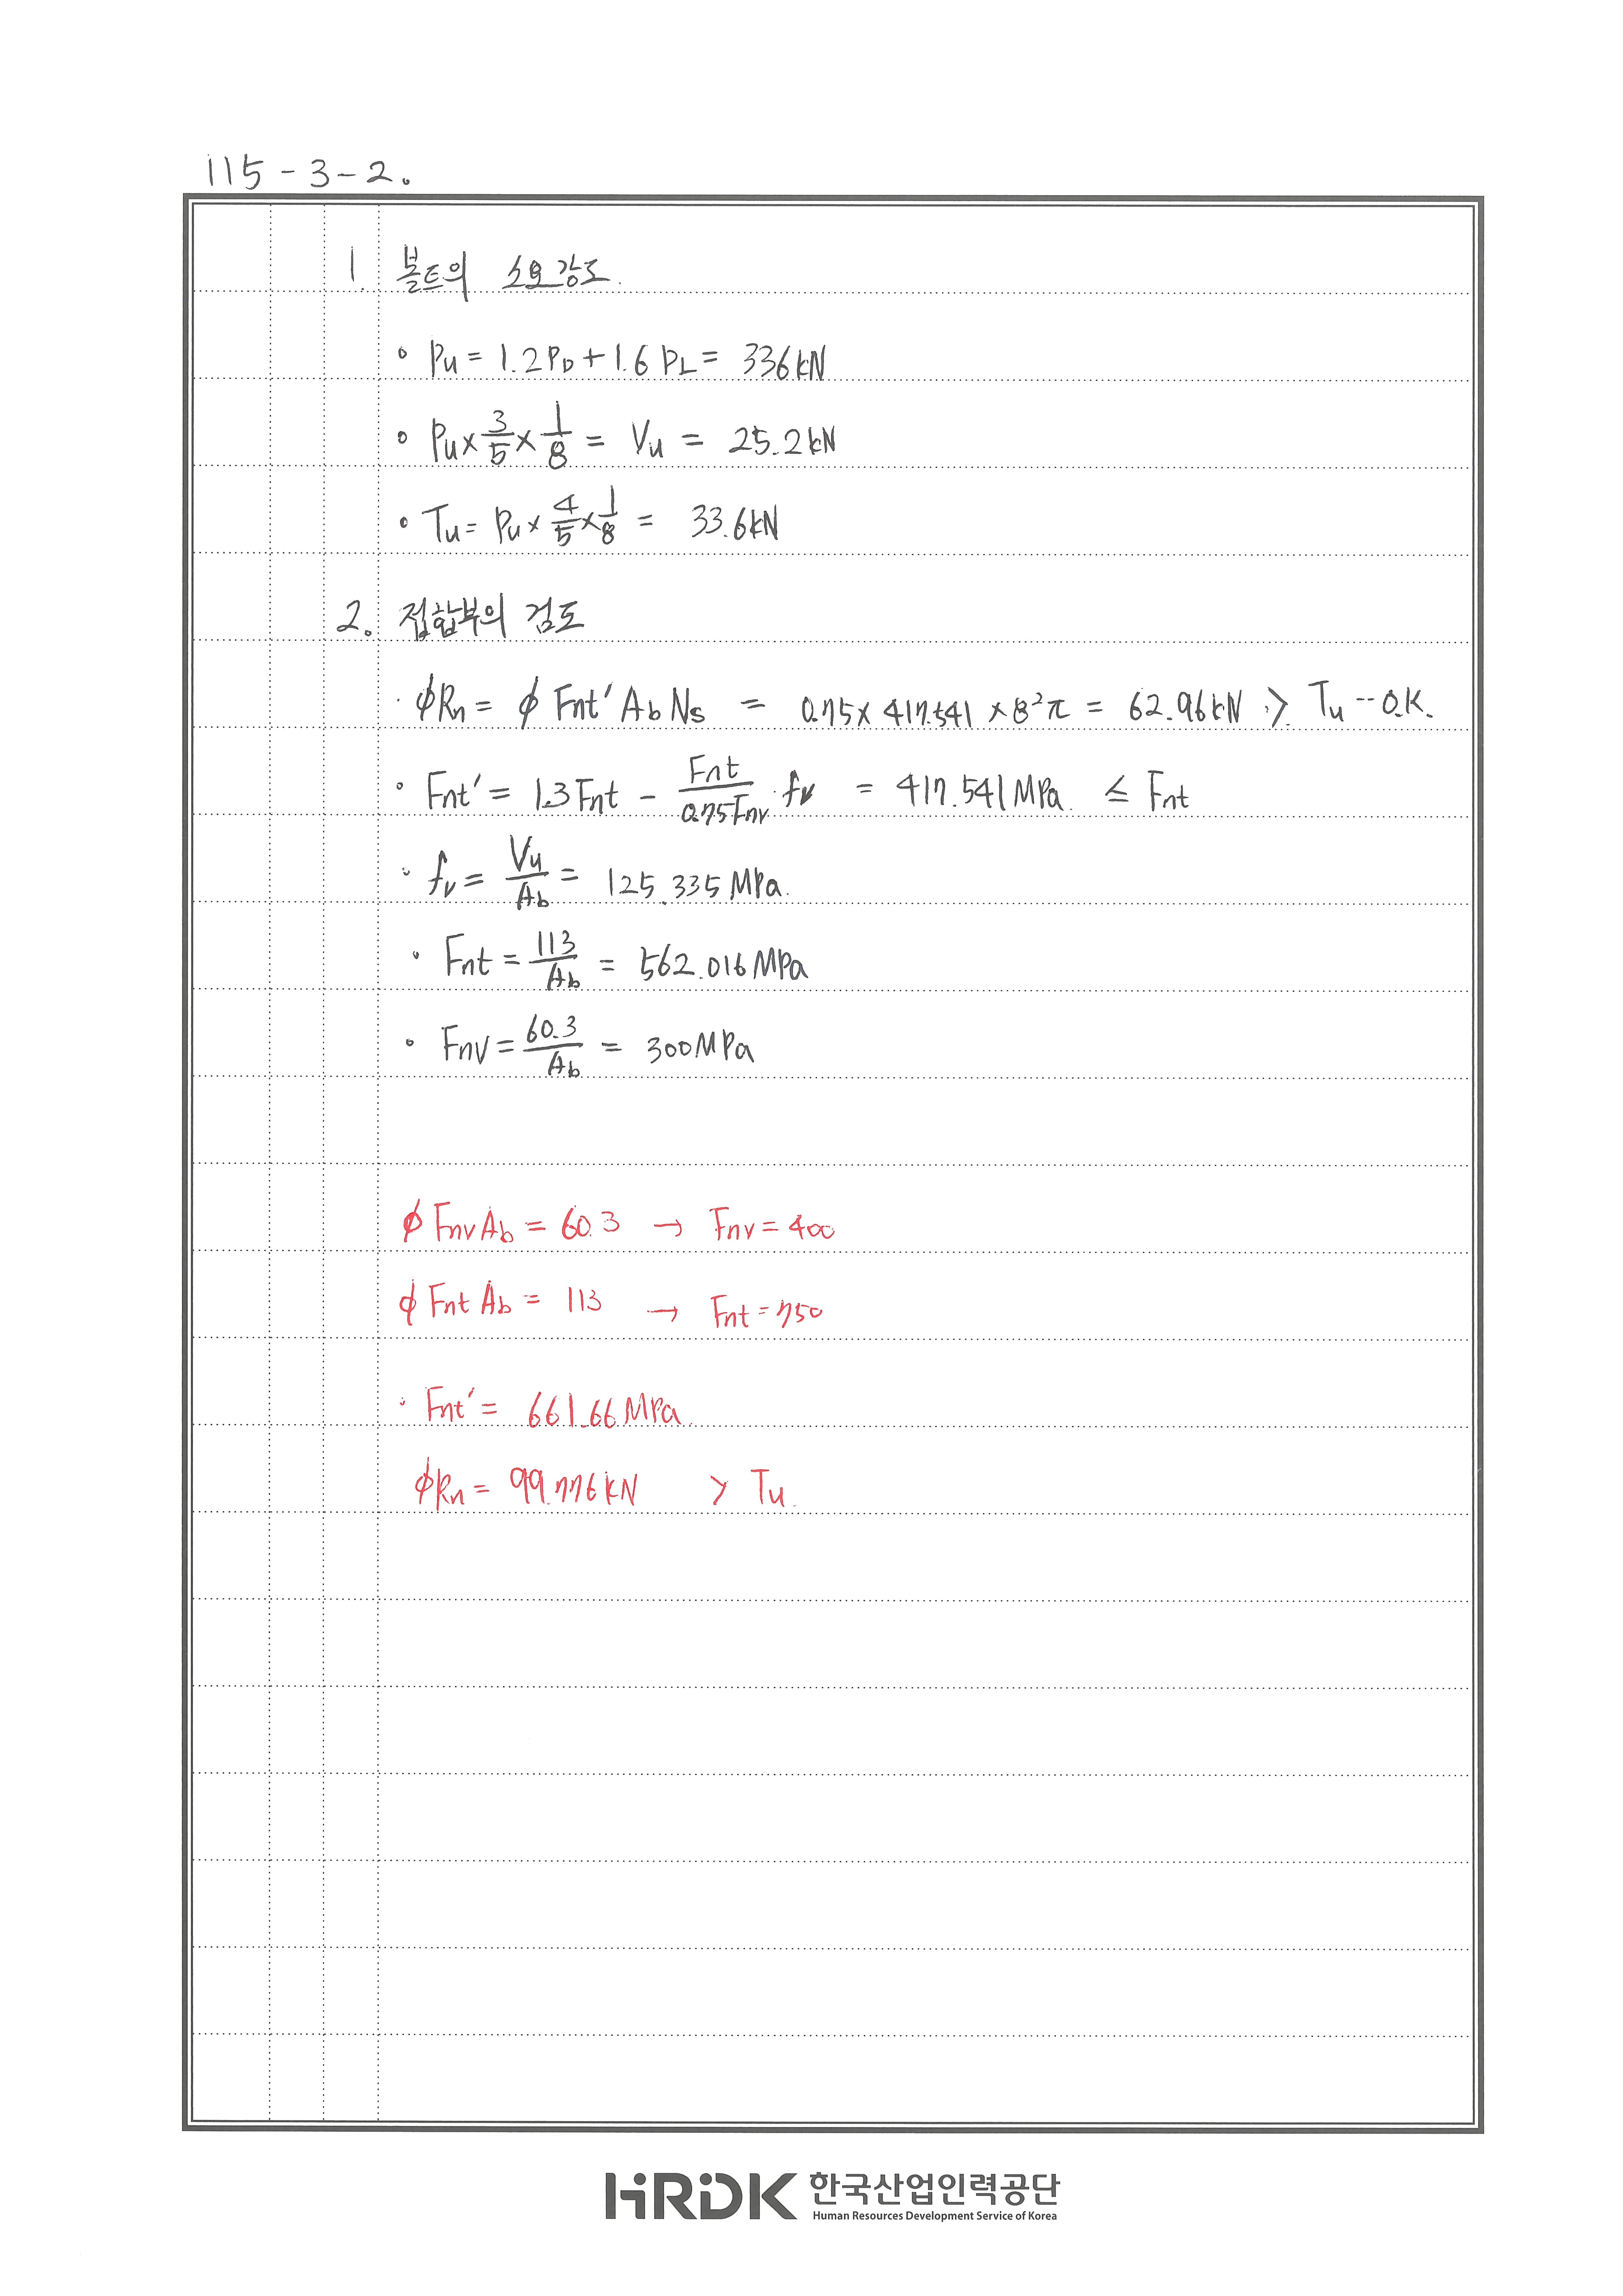 115-3-2.
1. 볼트의 소요강도.
• Pu = 1.2PD + 1.6PL = 336kN
• Pu × 3/5 × 1/8 = Vu = 25.2kN
• Tu = Pu × 4/5 × 1/8 = 33.6kN
2. 접합부의 검토
· ϕRn = ϕ Fnt' Ab Ns = 0.75 × 417.541 × 8²π = 62.96kN > Tu -- O.K.
• Fnt' = 1.3Fnt - Fnt/0.75Fnv · fv = 417.541MPa ≤ Fnt
• fv = Vu/Ab = 125.335MPa.
• Fnt = 113/Ab = 562.016MPa
• Fnv = 60.3/Ab = 300MPa
ϕ Fnv Ab = 60.3 → Fnv = 400
ϕ Fnt Ab = 113 → Fnt = 750
· Fnt' = 661.66MPa.
ϕRn = 99.776kN > Tu.
HRDK 한국산업인력공단
Human Resources Development Service of Korea